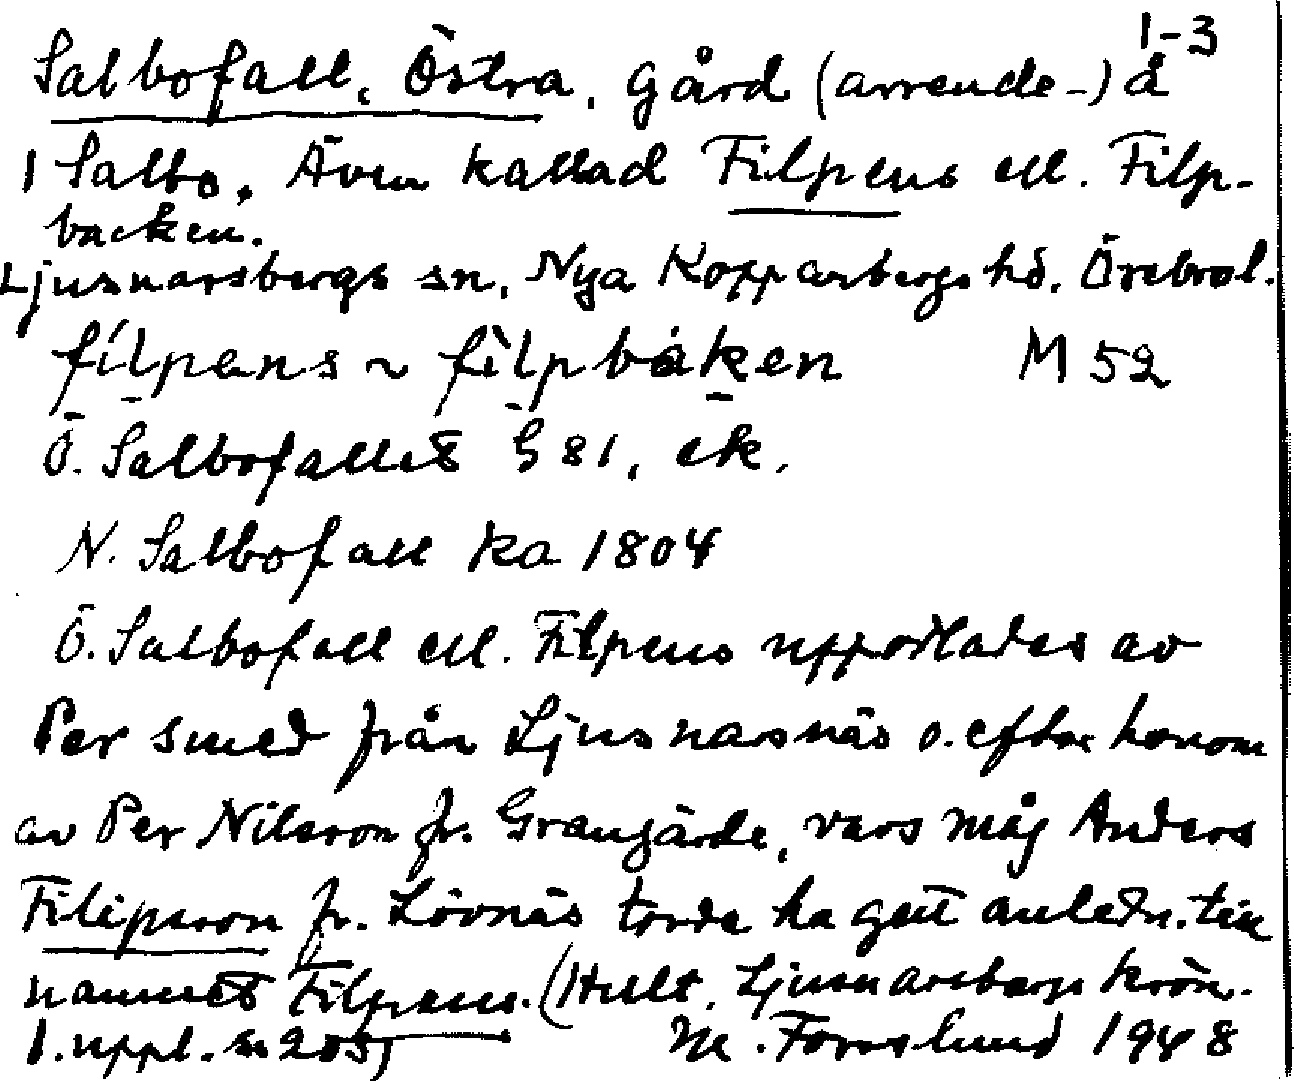 1-3
Salbofall, Östra, Gård (arrende-) å
1 Salbo. Även kallad Filpens ell. Filp-
backen.
Ljusnarsbergs sn, Nya Kopparbergs hd. Örebro l.
filpens ~ filpbaken M 52
Ö. Salbofallet G 81, ek.
N. Salbofall ka 1804
Ö. Salbofall ell. Filpens uppodlades av
Per smed från Ljusnarsnäs o. efter honom
av Per Nilsson fr. Grangärde, vars måg Anders
Filipsson fr. Lövnäs torde ha gett anledn. till
namnet Filpens. (Hult, Ljusnarsbergs krön.
1. uppl. s. 205)
M. Forsslund 1948